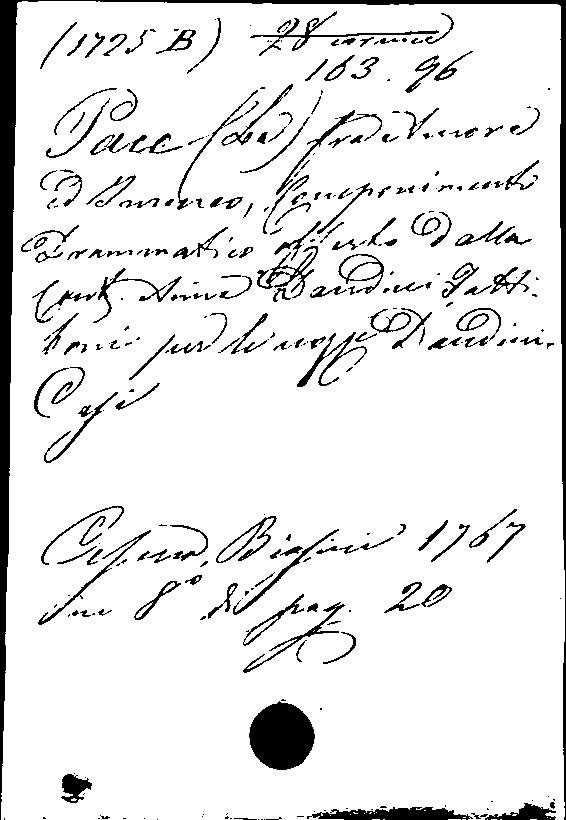 (1725 B)
163.96
Pace (La) fra Amore
ed Imeneo, Componimento
Drammatico offerto dalla
Cont. Anna Dandini Gatti-
boni per le nozze Dandini-
Cesena, Biasini 1767
in 8° di pag. 20